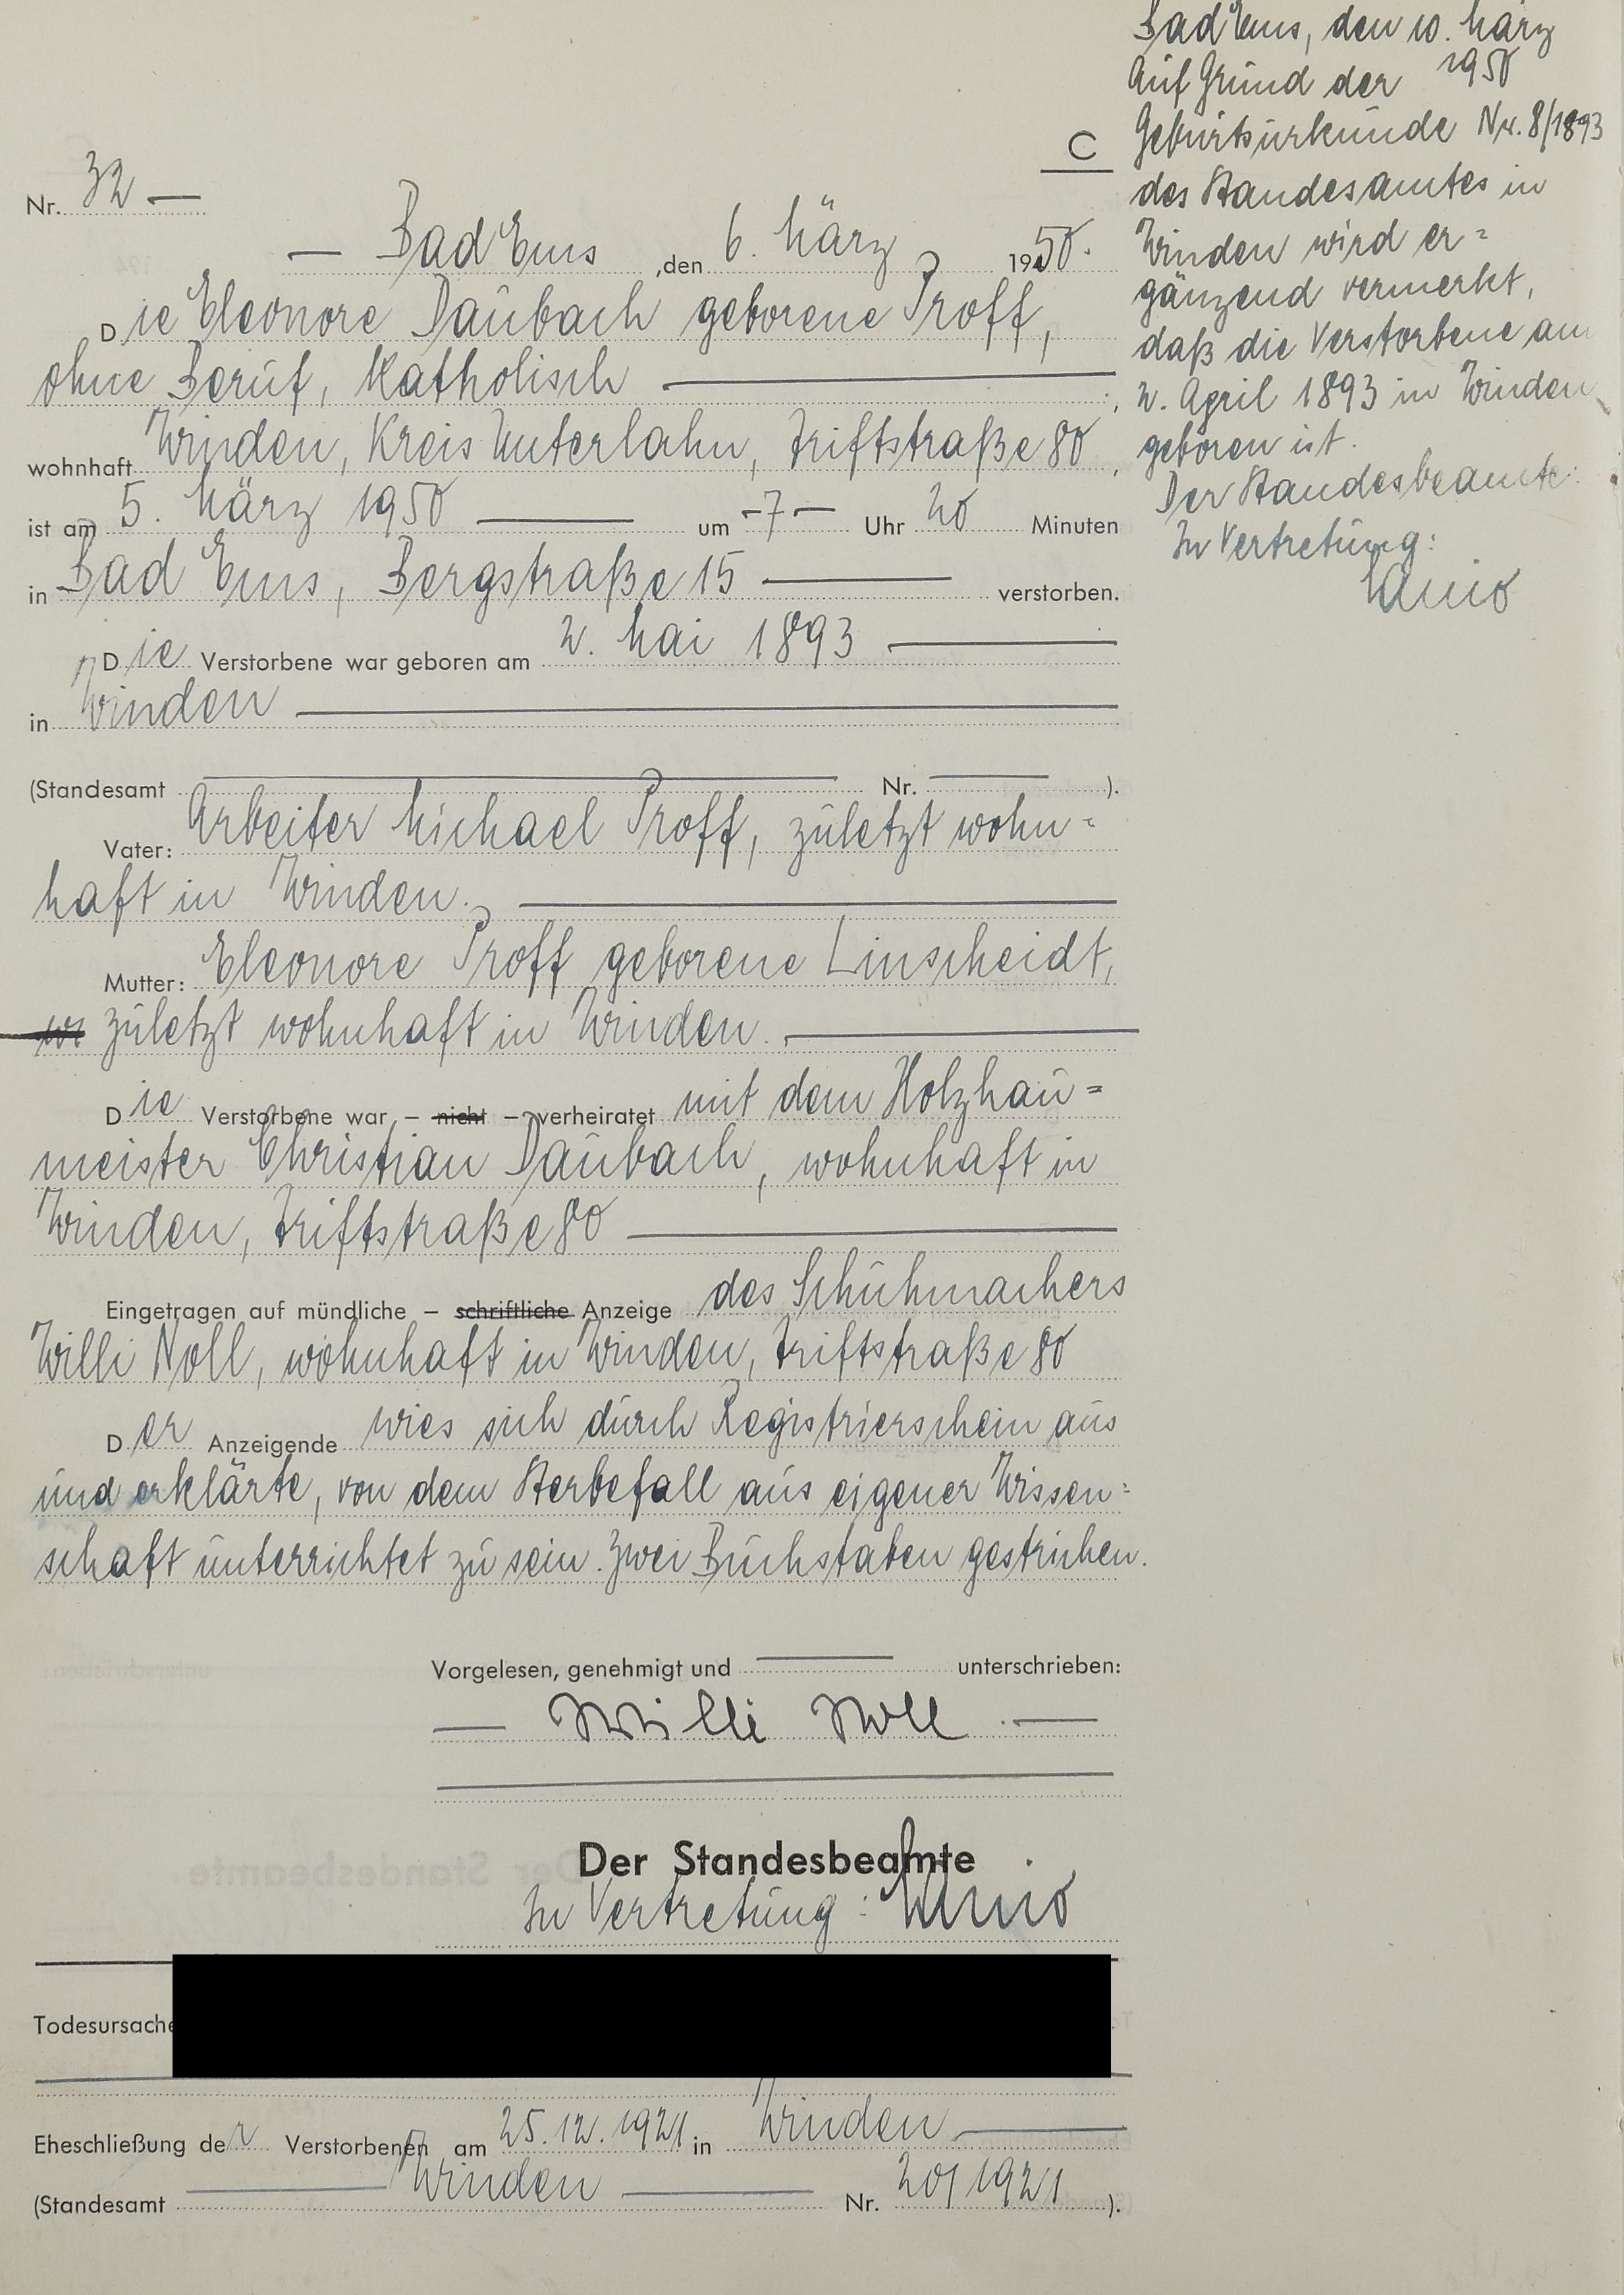 C
Nr. 32 —
— Bad Ems, den 6. März 1950.
Die Eleonore Daubach geborene Proff,
ohne Beruf, Katholisch —,
wohnhaft Winden, Kreis Unterlahn, Triftstraße 80,
ist am 5. März 1950 — um -7- Uhr 20 Minuten
in Bad Ems, Bergstraße 15 — verstorben.
Die Verstorbene war geboren am 2. Mai 1893 —
in Winden —
(Standesamt — Nr. — ).
Vater: Arbeiter Michael Proff, zuletzt wohn=
haft in Winden. —
Mutter: Eleonore Proff geborene Linscheidt,
wo zuletzt wohnhaft in Winden. —
Die Verstorbene war – nicht – verheiratet mit dem Holzhau=
meister Christian Daubach, wohnhaft in
Winden, Triftstraße 80 —
Eingetragen auf mündliche – schriftliche Anzeige des Schuhmachers
Willi Noll, wohnhaft in Winden, Triftstraße 80
Der Anzeigende wies sich durch Registrierschein aus
und erklärte, von dem Sterbefall aus eigener Wissen=
schaft unterrichtet zu sein. Zwei Buchstaben gestrichen.
Vorgelesen, genehmigt und — unterschrieben:
— Willi Noll —
Der Standesbeamte
In Vertretung:
Todesursache
Eheschließung der Verstorbenen am 25.12.1921 in Winden —
(Standesamt — Winden — Nr. 20/1921).
Bad Ems, den 10. März
1950
Auf Grund der
Geburtsurkunde Nr. 8/1893
des Standesamtes in
Winden wird er=
gänzend vermerkt,
daß die Verstorbene am
2. April 1893 in Winden
geboren ist.
Der Standesbeamte:
In Vertretung: